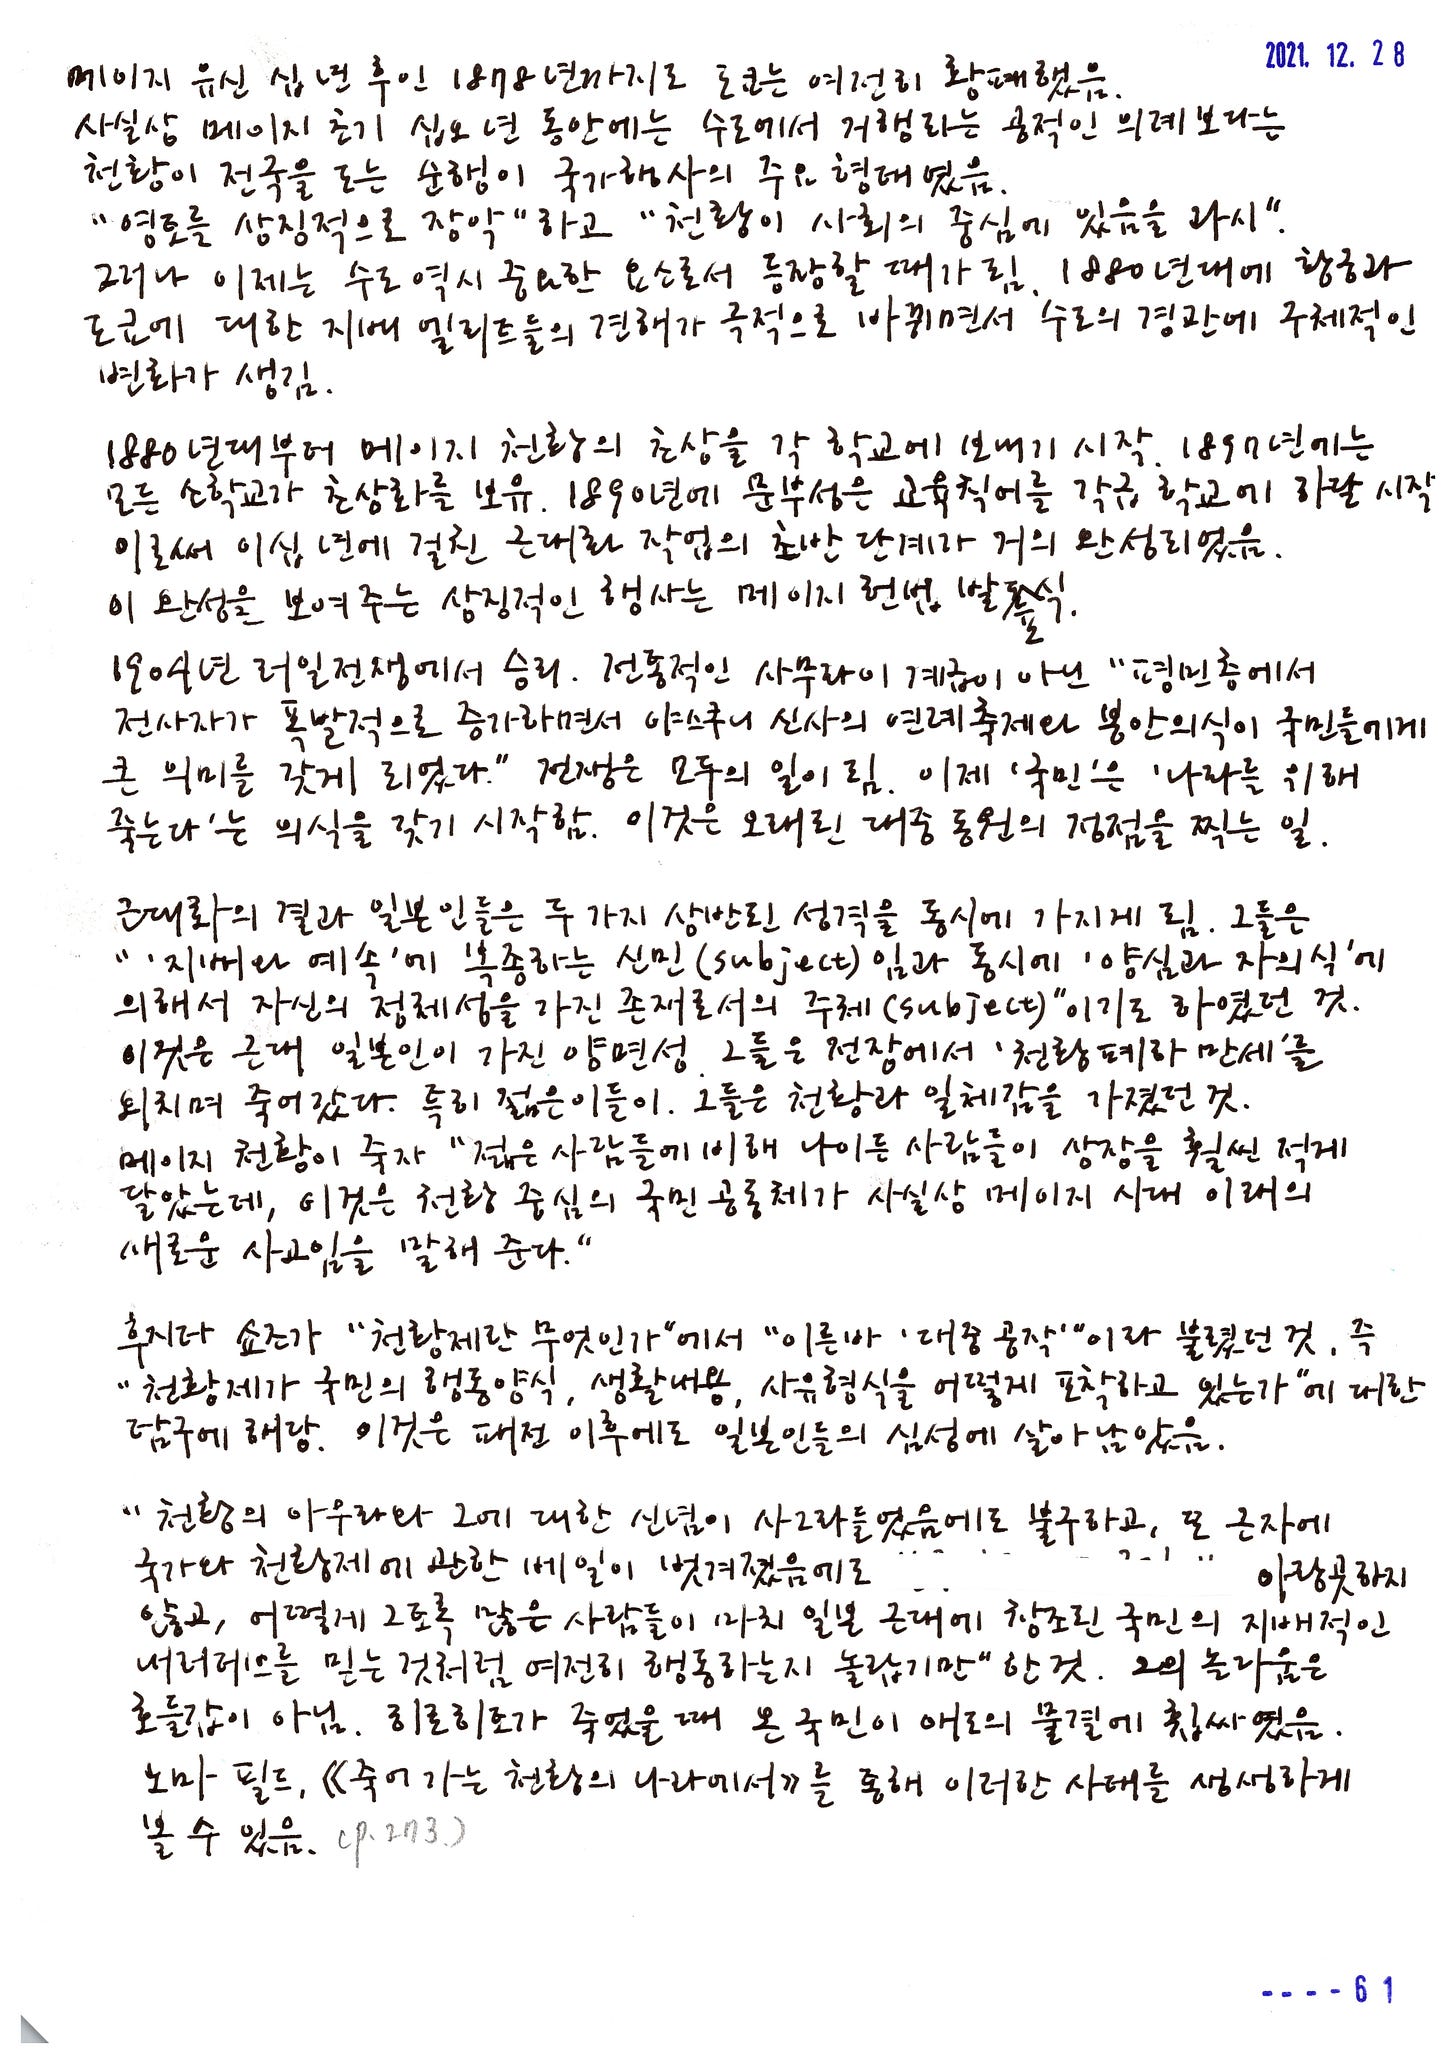 2021. 12. 28
메이지 유신 십 년 후인 1878년까지도 도쿄는 여전히 황폐했음.
사실상 메이지 초기 십오 년 동안에는 수도에서 거행되는 공적인 의례보다는
천황이 전국을 도는 순행이 국가행사의 주요 형태였음.
"영토를 상징적으로 장악"하고 "천황이 사회의 중심에 있음을 과시".
그러나 이제는 수도 역시 중요한 요소로서 등장할 때가 됨. 1880년대에 황궁과
도쿄에 대한 지배 엘리트들의 견해가 극적으로 바뀌면서 수도의 경관에 구체적인
변화가 생김.
1880년대부터 메이지 천황의 초상을 각 학교에 보내기 시작. 1897년에는
모든 소학교가 초상화를 보유. 1890년에 문부성은 교육칙어를 각급 학교에 하달 시작
이로써 이십 년에 걸친 근대화 작업의 초반 단계가 거의 완성되었음.
이 완성을 보여주는 상징적인 행사는 메이지 헌법 발표식.
1904년 러일전쟁에서 승리. 전통적인 사무라이 계급이 아닌 "평민층에서
전사자가 폭발적으로 증가하면서 야스쿠니 신사의 연례축제와 봉안의식이 국민들에게
큰 의미를 갖게 되었다." 전쟁은 모두의 일이 됨. 이제 '국민'은 '나라를 위해
죽는다'는 의식을 갖기 시작함. 이것은 오래된 대중 동원의 정점을 찍는 일.
근대화의 결과 일본인들은 두 가지 상반된 성격을 동시에 가지게 됨. 그들은
"'지배와 예속'에 복종하는 신민(subject)임과 동시에 '양심과 자의식'에
의해서 자신의 정체성을 가진 존재로서의 주체(subject)"이기도 하였던 것.
이것은 근대 일본인이 가진 양면성. 그들은 전장에서 '천황폐하 만세'를
외치며 죽어갔다. 특히 젊은이들이. 그들은 천황과 일체감을 가졌던 것.
메이지 천황이 죽자 "젊은 사람들에 비해 나이든 사람들이 상장을 훨씬 적게
달았는데, 이것은 천황 중심의 국민공동체가 사실상 메이지 시대 이래의
새로운 사고임을 말해 준다."
후지타 쇼조가 "천황제란 무엇인가"에서 "이른바 '대중 공작'"이라 불렀던 것. 즉
"천황제가 국민의 행동양식, 생활내용, 사유형식을 어떻게 포착하고 있는가"에 대한
탐구에 해당. 이것은 패전 이후에도 일본인들의 심성에 살아남았음.
"천황의 아우라와 그에 대한 신념이 사그라들었음에도 불구하고, 또 근자에
국가와 천황제에 관한 베일이 벗겨졌음에도 아랑곳하지
않고, 어떻게 그토록 많은 사람들이 마치 일본 근대에 창조된 국민의 지배적인
내러티브를 믿는 것처럼 여전히 행동하는지 놀랍기만" 한 것. 그의 놀라움은
호들갑이 아님. 히로히토가 죽었을 때 온 국민이 애도의 물결에 휩싸였음.
노마 필드, 《죽어가는 천황의 나라에서》를 통해 이러한 사태를 생생하게
볼 수 있음. (p.273.)
----61